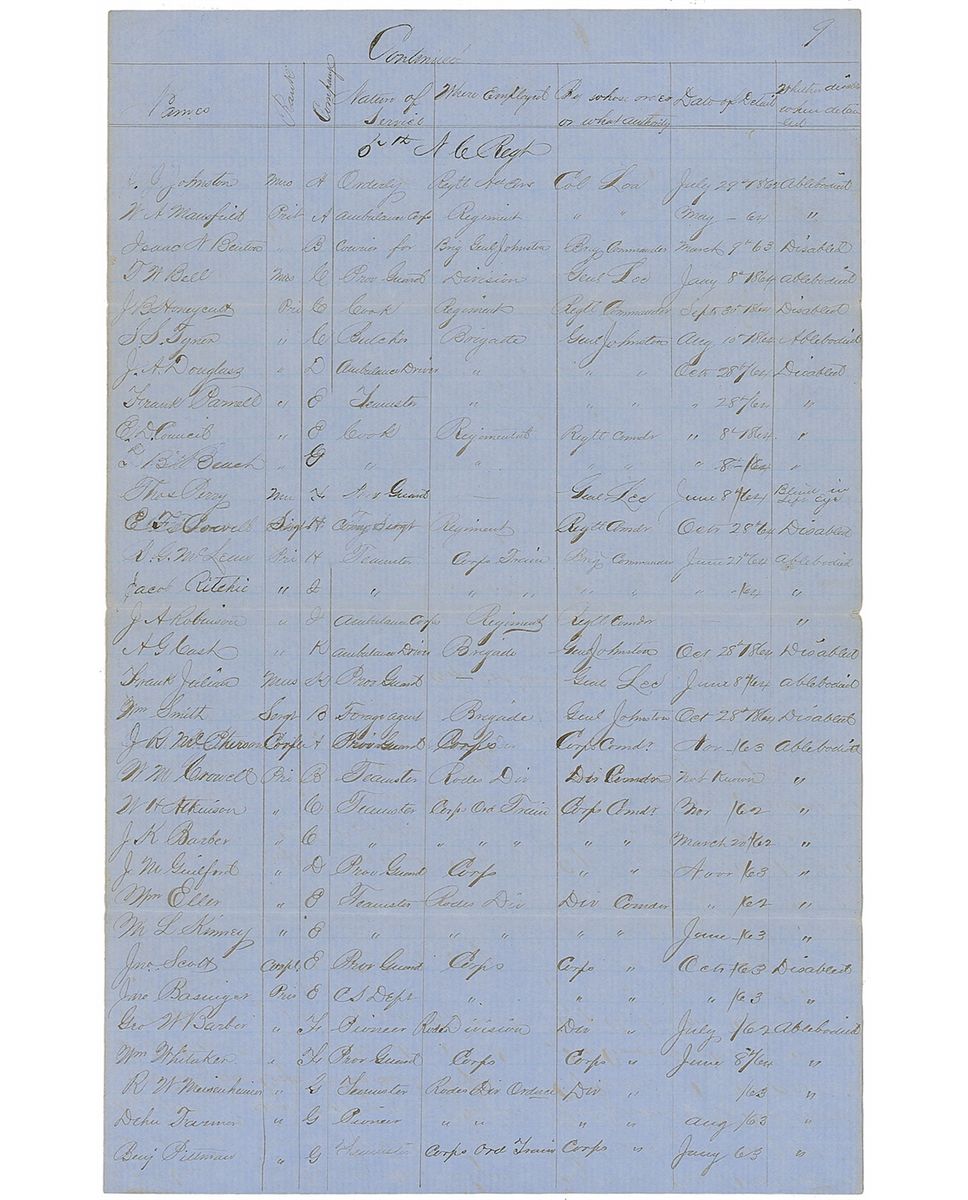 9
Continued
Names Rank Company Nature of Service Where Employed By whose order or what authority Date of Detail Whether disabled when detailed
5th N C Regt
Johnston Mus A Orderly Regtl Hd Qrs Col Lea July 29th 1864 Ablebodied
W A Mansfield Prit A Ambulance Corps Regiment " " May - 64 "
Isaac N Benton " B Courier for Brig Genl Johnston Brig Commander March 9th 63 Disabled
T W Bell Mus C Prov Guard Division Genl Lee Jany 8th 1864 Ablebodied
J B Honeycutt Pri C Cook Regiment Regtl Commander Sept 30th 1864 Disabled
S S Tyner " C Butcher Brigade Genl Johnston Aug 10th 1864 Ablebodied
J. A. Douglass " D Ambulance Driver " " " Octr 28th/64 Disabled
Frank Parnell " E Teamster " " " " 28th/64 "
C. D. Council " E Cook Regiment Regtl Comdr " 8th 1864 "
Bill Beach " G " " " " " 8th/64 "
Thos Perry Mus H Prov Guard — Genl Lee June 8th/64 Blind in left Eye
E. F. Powell Sergt H Forage Sergt Regiment Regtl Comdr Octr 28th/64 Disabled
S. G. McLean Pri H Teamster Corps Train Brig Commander June 27th/64 Ablebodied
Jacob Ritchie " I " " " " " " -/64 "
J A Robinson " I Ambulance Corps Regiment Regtl Comdr — "
A G Cash " K Ambulance Driver Brigade Genl Johnston Oct 28th 1864 Disabled
Frank Julian Mus K Prov Guard — Genl Lee June 8th/64 Ablebodied
Wm Smith Sergt B Forage agent Brigade Genl Johnston Oct 28th 1864 Disabled
J. R. McPherson Corpl A Prov Guard Corps Corp Comdr Nov - /63 Ablebodied
W M Crowell Pri B Teamster Rodes Div Div Comdr Not Known "
W H Atkinson " C Teamster Corps Ord Train Corps Comdr Nov /62 "
J K Barber " C " " " " " " March 20th/62 "
J M Guilford " D Prov Guard Corps " " Novr /63 "
Wm Eller " E Teamster Rodes Div Div Comdr " /62 "
M L Kinney " E " " " " " June /63 "
Jno. Scott Corpl E Prov Guard Corps Corps " Octr /63 Disabled
Jno Basinger Pri E C S Dept " " " " /63 "
Geo W Barber " F Pioneer Rodes Division Div " July /62 Ablebodied
Wm Whitaker " F Prov Guard Corps Corps " June 8th/64 "
R W Meisenheimer " G Teamster Rodes Div Ordnce Div " /63 "
Dehu Farmer " G Pioneer " " " " Aug /63 "
Benj Pittman " G Teamster Corps Ord Train Corps " Jany 63 "